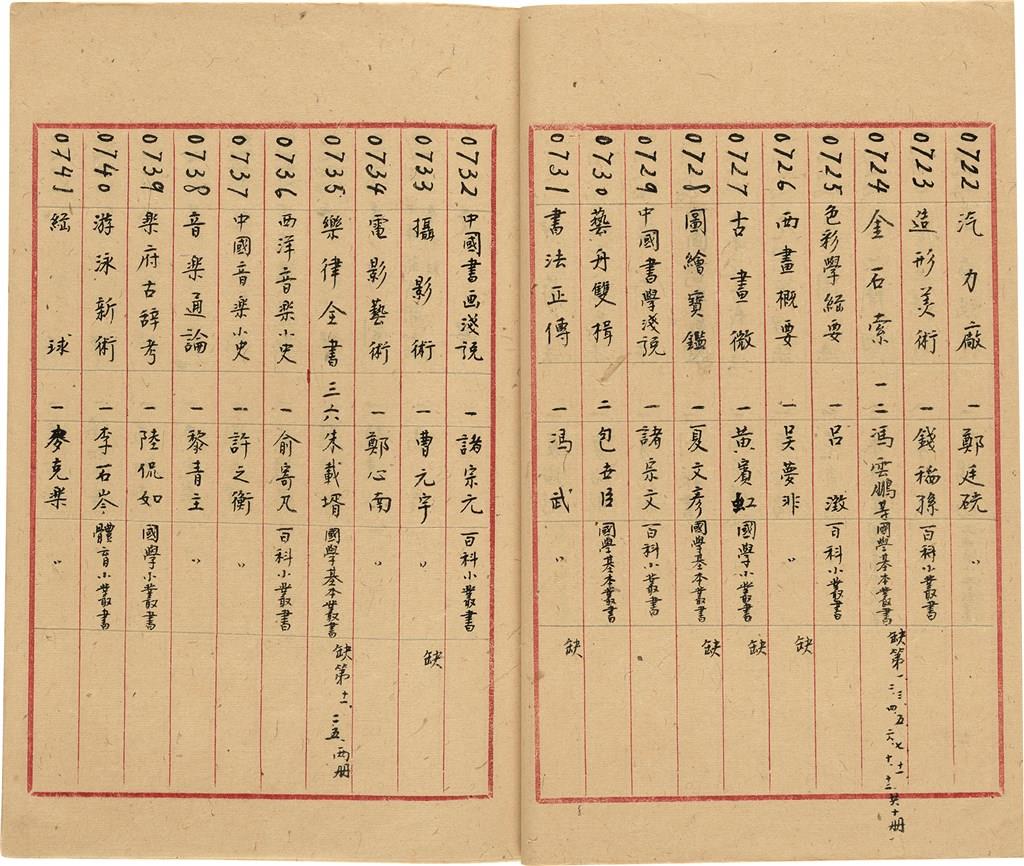 0722 汽力廠 一 鄭廷硴 〃
0723 造形美術 一 錢稲孫 百科小叢書
0724 金石索 一二 馮雲鵬等 國學基本叢書 缺第一、二、三、四、五、六、七、十、十一、十二、共十册
0725 色彩學綱要 一 呂澂 百科小叢書
0726 西畫概要 一 吴夢非 〃 缺
0727 古畫微 一 黄賓虹 國學小叢書 缺
0728 圖繪寶鑑 一 夏文彦 國學基本叢書 缺
0729 中國書學淺説 一 諸宗文 百科小叢書
0730 藝舟雙楫 二 包吾臣 國學基本叢書
0731 書法正傳 一 馮武 〃 缺
0732 中國書画淺説 一 諸宗元 百科小叢書
0733 攝影術 一 曹元宇 〃 缺
0734 電影藝術 一 鄭心南 〃
0735 樂律全書 三六 朱載堉 國學基本叢書 缺第十一、二五、两册
0736 西洋音楽小史 一 俞寄凡 百科小叢書
0737 中國音楽小史 一 許之衡 〃
0738 音楽通論 一 黎青主 〃
0739 楽府古辞考 一 陸侃如 國學小叢書
0740 游泳新術 一 李石岑 體育小叢書
0741 球 一 麥克楽 〃